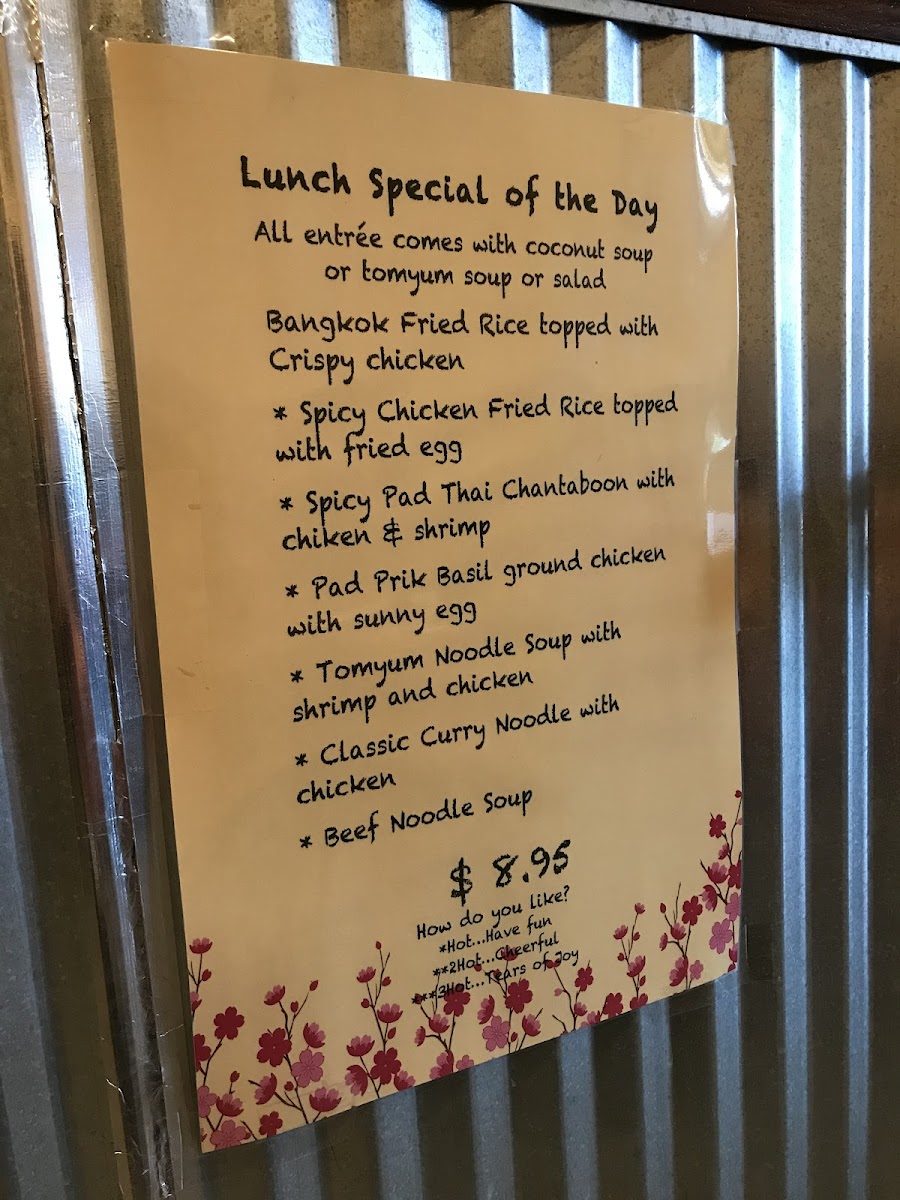 Lunch Special of the Day
All entrée comes with coconut soup
or tomyum soup or salad
Bangkok Fried Rice topped with
Crispy chicken
* Spicy Chicken Fried Rice topped
with fried egg
* Spicy Pad Thai Chantaboon with
chiken & shrimp
* Pad Prik Basil ground chicken
with sunny egg
* Tomyum Noodle Soup with
shrimp and chicken
* Classic Curry Noodle with
chicken
* Beef Noodle Soup
$ 8.95
How do you like?
*Hot...Have fun
**2Hot...Cheerful
***3Hot...Tears of Joy